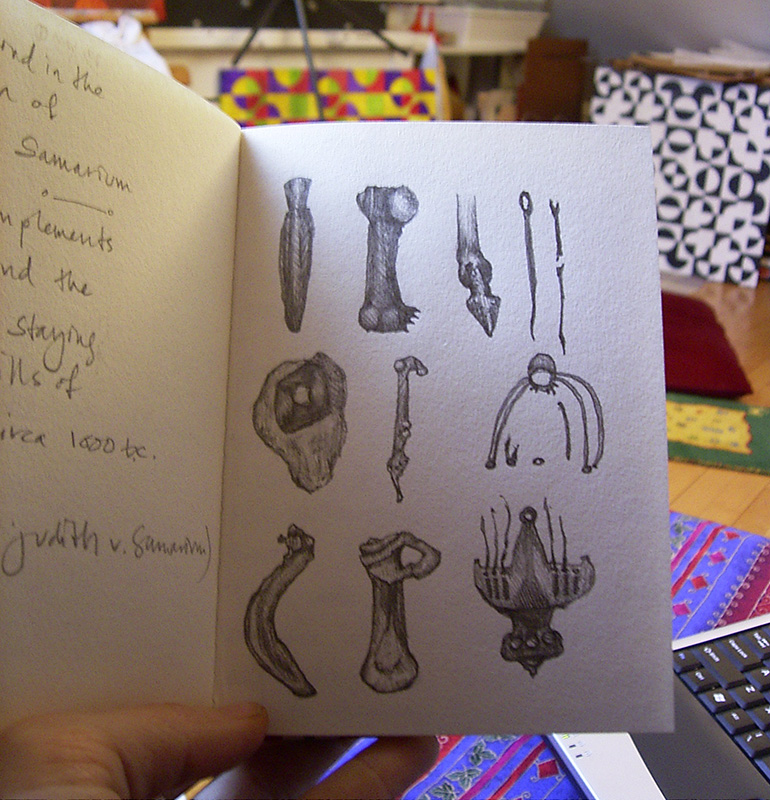 in the
of
Samarium
nplements
nd the
staying
lls of
irca 1000 bc.
judith v. Samarium)